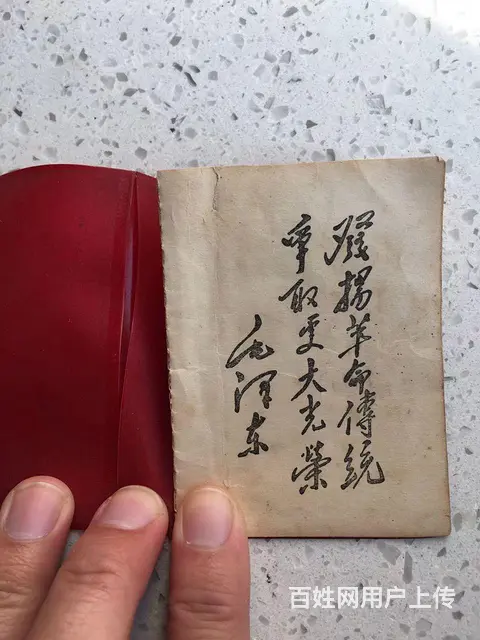 發揚革命傳統
爭取更大光榮
毛澤东
百姓网用户上传